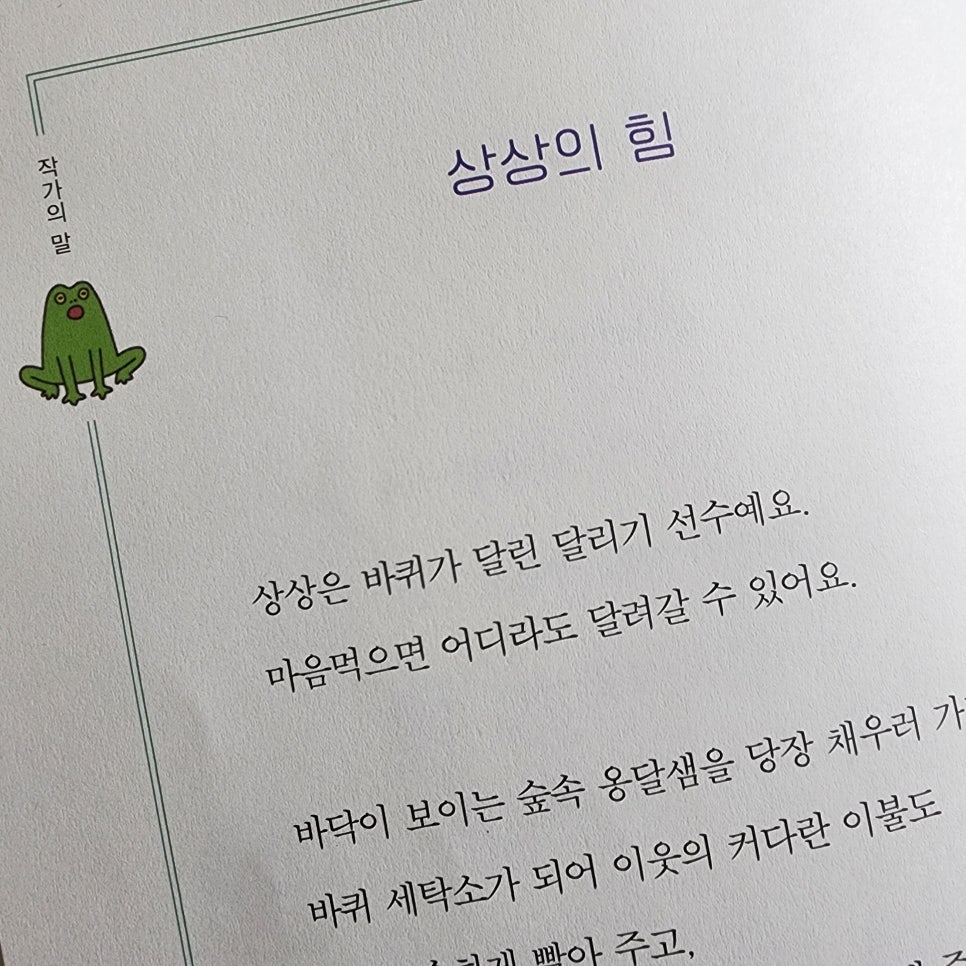 작가의 말
상상의 힘
상상은 바퀴가 달린 달리기 선수예요.
마음먹으면 어디라도 달려갈 수 있어요.
바닥이 보이는 숲속 옹달샘을 당장 채우러 가
바퀴 세탁소가 되어 이웃의 커다란 이불도
빨아 주고,